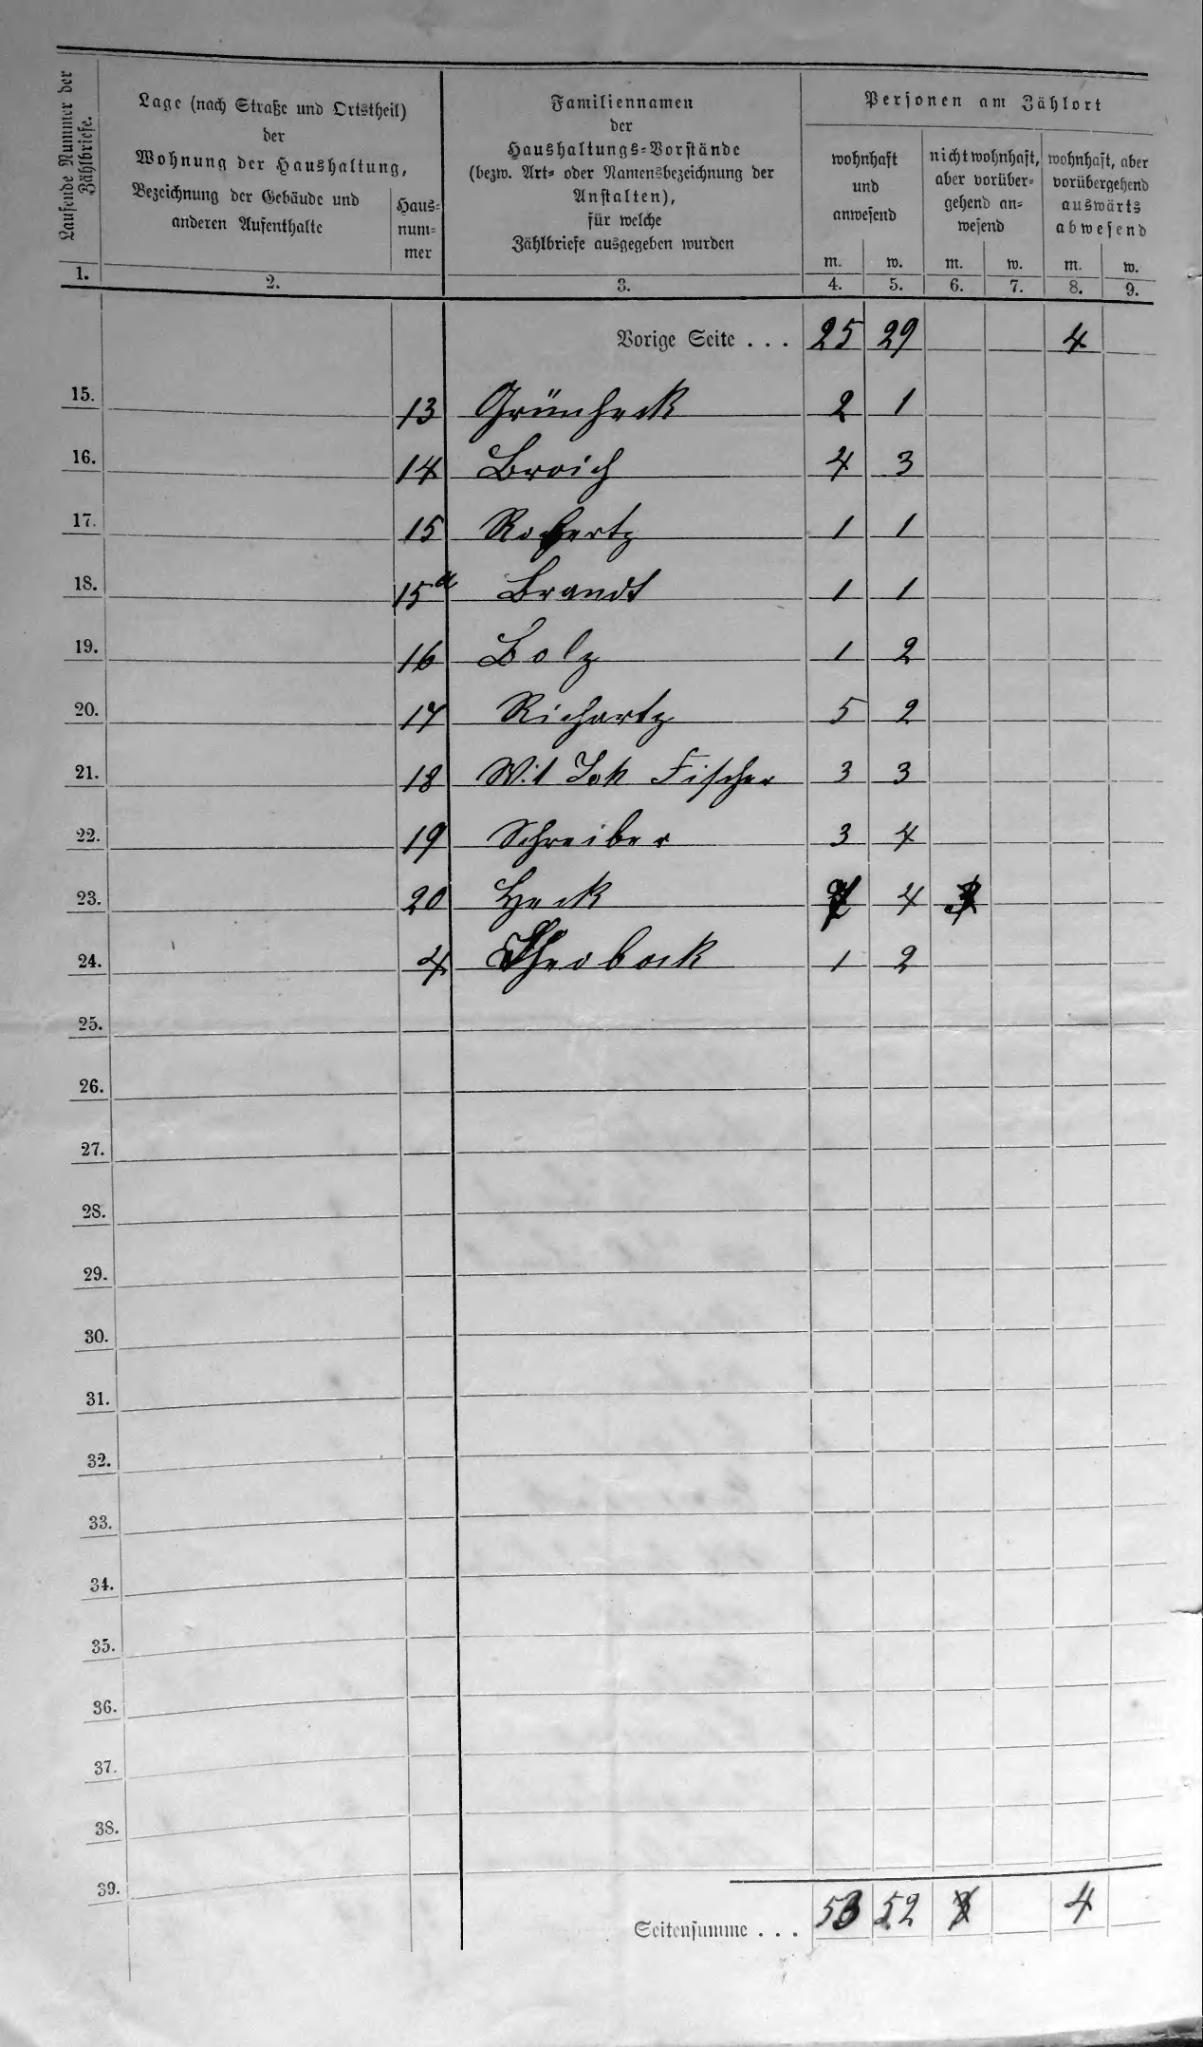 Laufende Nummer der Zählbriefe.
Lage (nach Straße und Ortstheil)
der
Wohnung der Haushaltung,
Bezeichnung der Gebäude und
anderen Aufenthalte
Haus-
num-
mer
Familiennamen
der
Haushaltungs-Vorstände
(bezw. Art- oder Namensbezeichnung der
Anstalten),
für welche
Zählbriefe ausgegeben wurden
Personen am Zählort
wohnhaft
und
anwesend
nicht wohnhaft,
aber vorüber-
gehend an-
wesend
wohnhaft, aber
vorübergehend
auswärts
abwesend
m. w. m. w. m. w.
1. 2. 3. 4. 5. 6. 7. 8. 9.
Vorige Seite . . . 25 29 4
15. 13 Grünheck 2 1
16. 14 Broich 4 3
17. 15 1 1
18. 15a Brandt 1 1
19. 16 Bolz 1 2
20. 17 Richartz 5 2
21. 18 Wit Joh Fischer 3 3
22. 19 Schreiber 3 4
23. 20 Heck 4
24. 4 1 2
25.
26.
27.
28.
29.
30.
31.
32.
33.
34.
35.
36.
37.
38.
39.
Seitensumme . . . 53 52 4